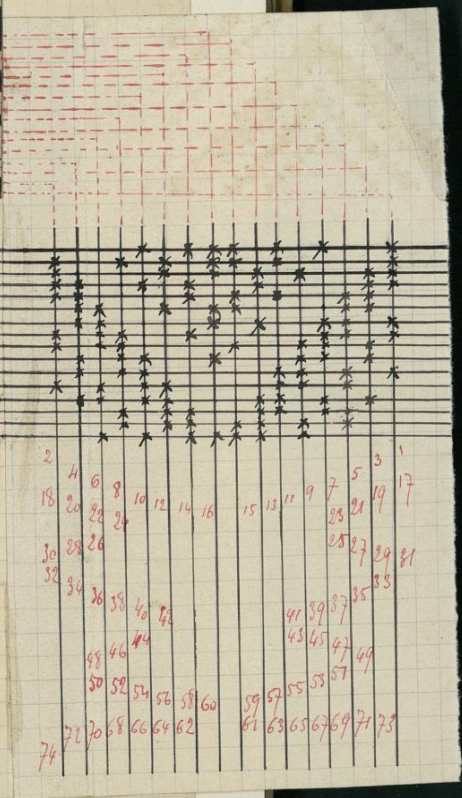 2 4 6 8 10 12 14 16 15 13 11 9 7 5 3 1
18 20 22 24 23 21 19 17
30 28 26 25 27 29 31
32 34 36 38 40 42 41 39 37 35 33
48 46 44 43 45 47 49
50 52 54 56 58 60 59 57 55 53 51
74 72 70 68 66 64 62 61 63 65 67 69 71 73